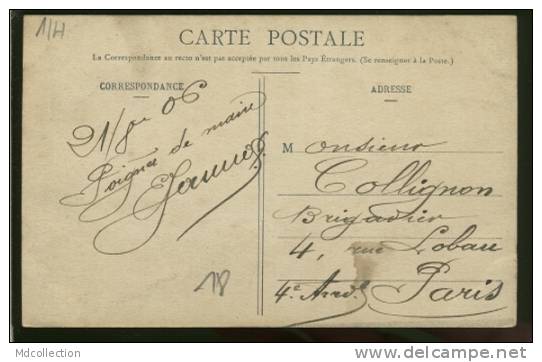 1/H
CARTE POSTALE
La Correspondance au recto n'est pas acceptée par tous les Pays Étrangers. (Se renseigner à la Poste.)
CORRESPONDANCE
21/8re 06
Poignée de main
18
ADRESSE
Monsieur
Collignon
Brigadier
4, rue Lobau
4e Arrd.
Paris
Mdcollection
http://www.delcampe.net